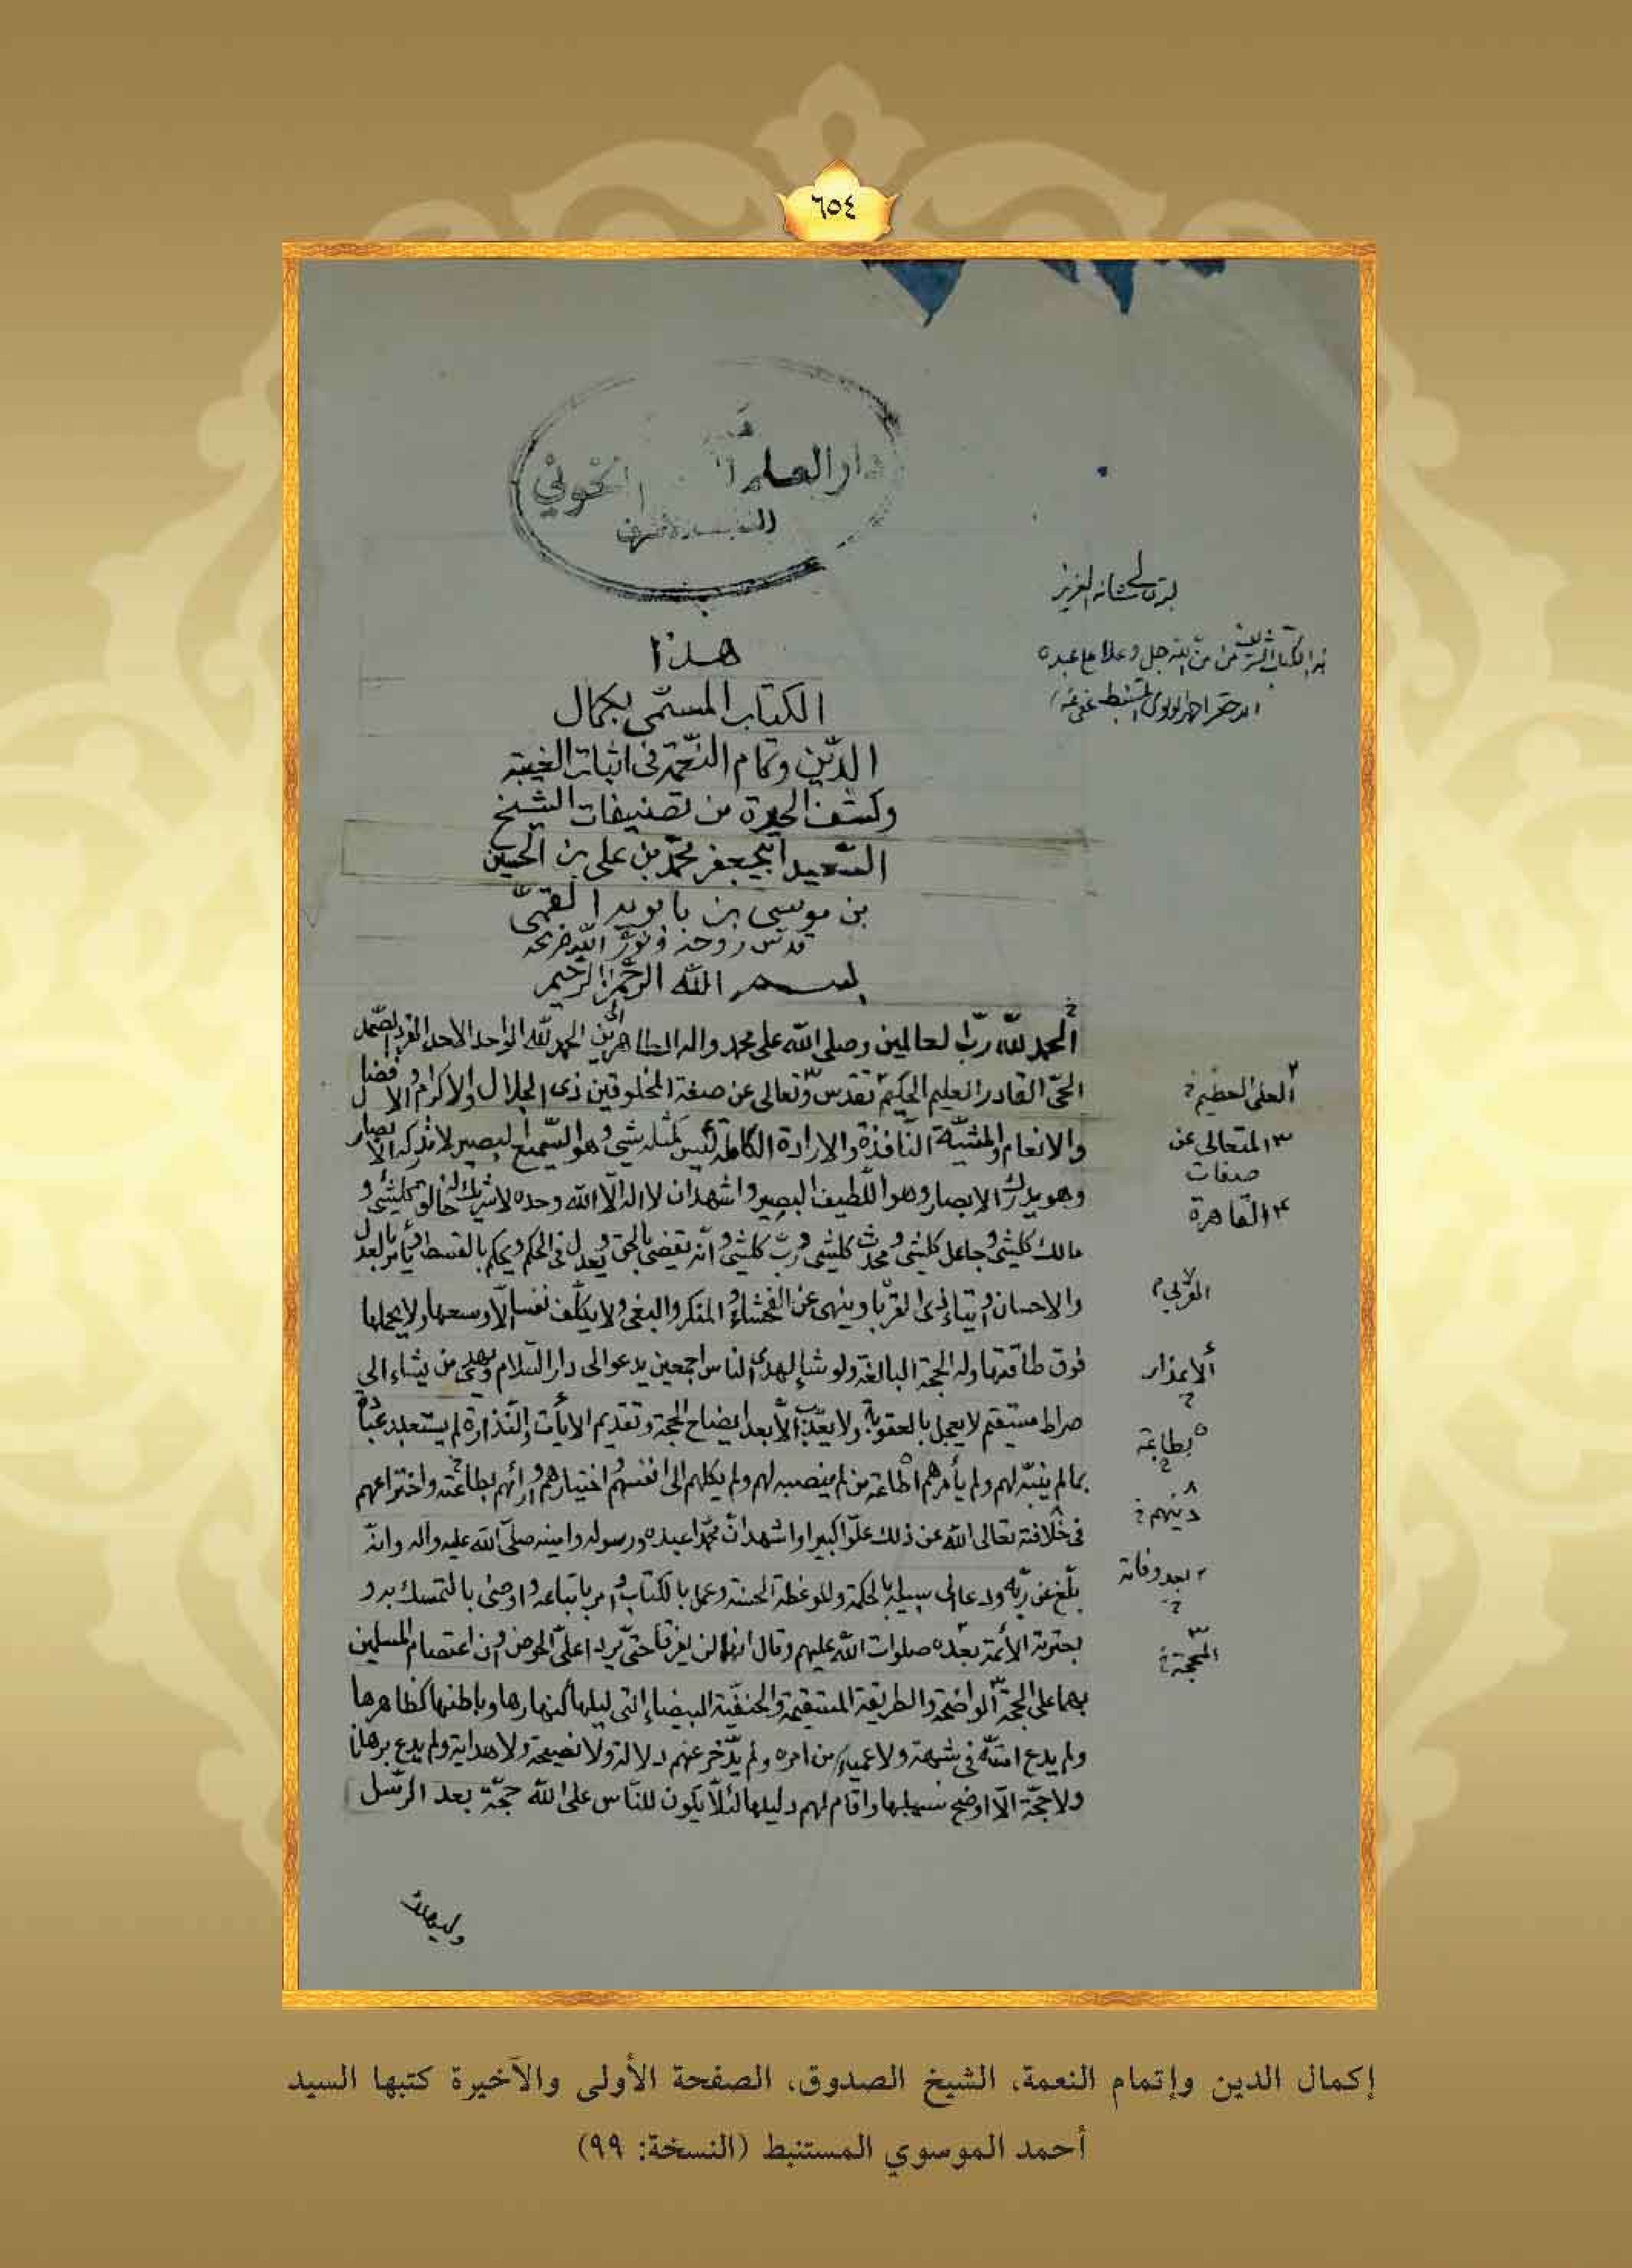 ٦٥٤
دار العلم
الخوئي
هذا
الكتاب المسمّى بكمال
الدّين وتمام النّعمة فى اثبات الغيبة
وكشف الحيرة من تصنيفات الشيخ
السّعيد ابيجعفر محمّد بن على بن الحسين
بن موسى بن بابويه القمىّ
قدس روحه ونوّر اللّه ضريحه
بسم الله الرّحمن الرّحيم
الحمد للّه ربّ العالمين وصلى اللّه على محمد واله الطاهرين الحمد للّه الواحد الاحد الفرد الصّمد
الحىّ القادر العليم الحكيم تقدس وتعالى عن صفة المخلوقين ذى الجلال والاكرام والافضال
والانعام والمشيّة النّافذة والارادة الكاملة ليس كمثله شيئ وهو السّميع البصير لا تدركه الابصار
وهو يدرك الابصار وهو اللّطيف البصير واشهد ان لا اله الّا اللّه وحده لا شريك له خالق كلشيئ و
مالك كلشيئ وجاعل كلشيئ ومحدث كلشيئ وربّ كلشيئ وانّه يقضى بالحق ويعدل فى الحكم ويحكم بالقسط ويأمر بالعدل
والاحسان وايتاء ذى القربا وينهى عن الفحشاء والمنكر والبغى ولا يكلّف نفسا الّا وسعها ولا يحملها
فوق طاقتها وله الحجة البالغة ولو شاء لهدى الناس اجمعين يدعو الى دار السّلام ويهدى من يشاء الى
صراط مستقيم لا يعجل بالعقوبة ولا يعذّب الّا بعد ايضاح الحجة وتقديم الايات والنّذارة لم يستعبد عباده
بما لم يبيّنه لهم ولم يأمرهم اطاعة من لم ينصبه لهم ولم يكلهم الى انفسهم واختيارهم وارائهم بطاعته واختراعهم
فى خلافته تعالى اللّه عن ذلك علوّا كبيرا واشهد انّ محمّدا عبده ورسوله وامينه صلّى اللّه عليه وآله وانّه
بلّغ عن ربّه ودعا الى سبيله بالحكمة والموعظة الحسنة وعمل بالكتاب وامر باتباعه واوصى بالتمسك به و
بعترته الأئمّة بعده صلوات اللّه عليهم وقال انهما لن يفترقا حتّى يردا علىّ الحوض وان اعتصام المسلمين
بهما على الحجة الواضحة والطريقة المستقيمة والحنفيّة البيضاء التى ليلها كنهارها وباطنها كظاهرها
ولم يدع امّته فى شبهة ولا عمياء من امره ولم يدّخر عنهم دلالة ولا نصيحة ولا هداية ولم يدع برهانا
ولا حجّة الّا اوضح سبيلها واقام لهم دليلها لئلّا يكون للنّاس على اللّه حجّة بعد الرّسل
العلى العظيم
المتعالى عن
صفات
القاهرة
القربى
الأعذار
بطاعة
دينهم
بعد وفاته
المحجة
وليهلك
إكمال الدين وإتمام النعمة، الشيخ الصدوق، الصفحة الأولى والأخيرة كتبها السيد
أحمد الموسوي المستنبط (النسخة: ٩٩)